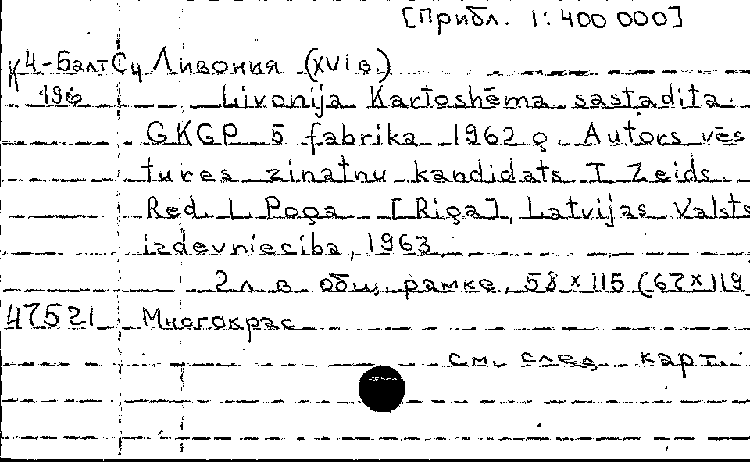 [Прибл. 1:400 000]
К4-БалтСц Ливония (XVI в.)
196 Livonija Kartoshēma sastadīta
GKGP 5 fabrika 1962 g. Autors vēs
tures zinatņu kandidats T. Zeids.
Red. L. Poga [Riga], Latvijas Valsts
izdevniecība, 1963.
2 л. в общ. рамке, 58 × 115 (67 × 119
47521 Многокрас
см. след. карт.